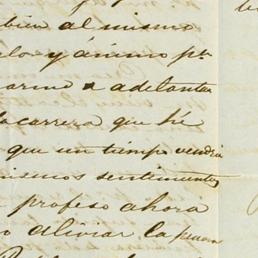 bien al mismo
y ánimo pa
arme a adelantar
la carrera que
que un tiempo vendria
mismos sentimientos
profeso ahora
aliviar la pena